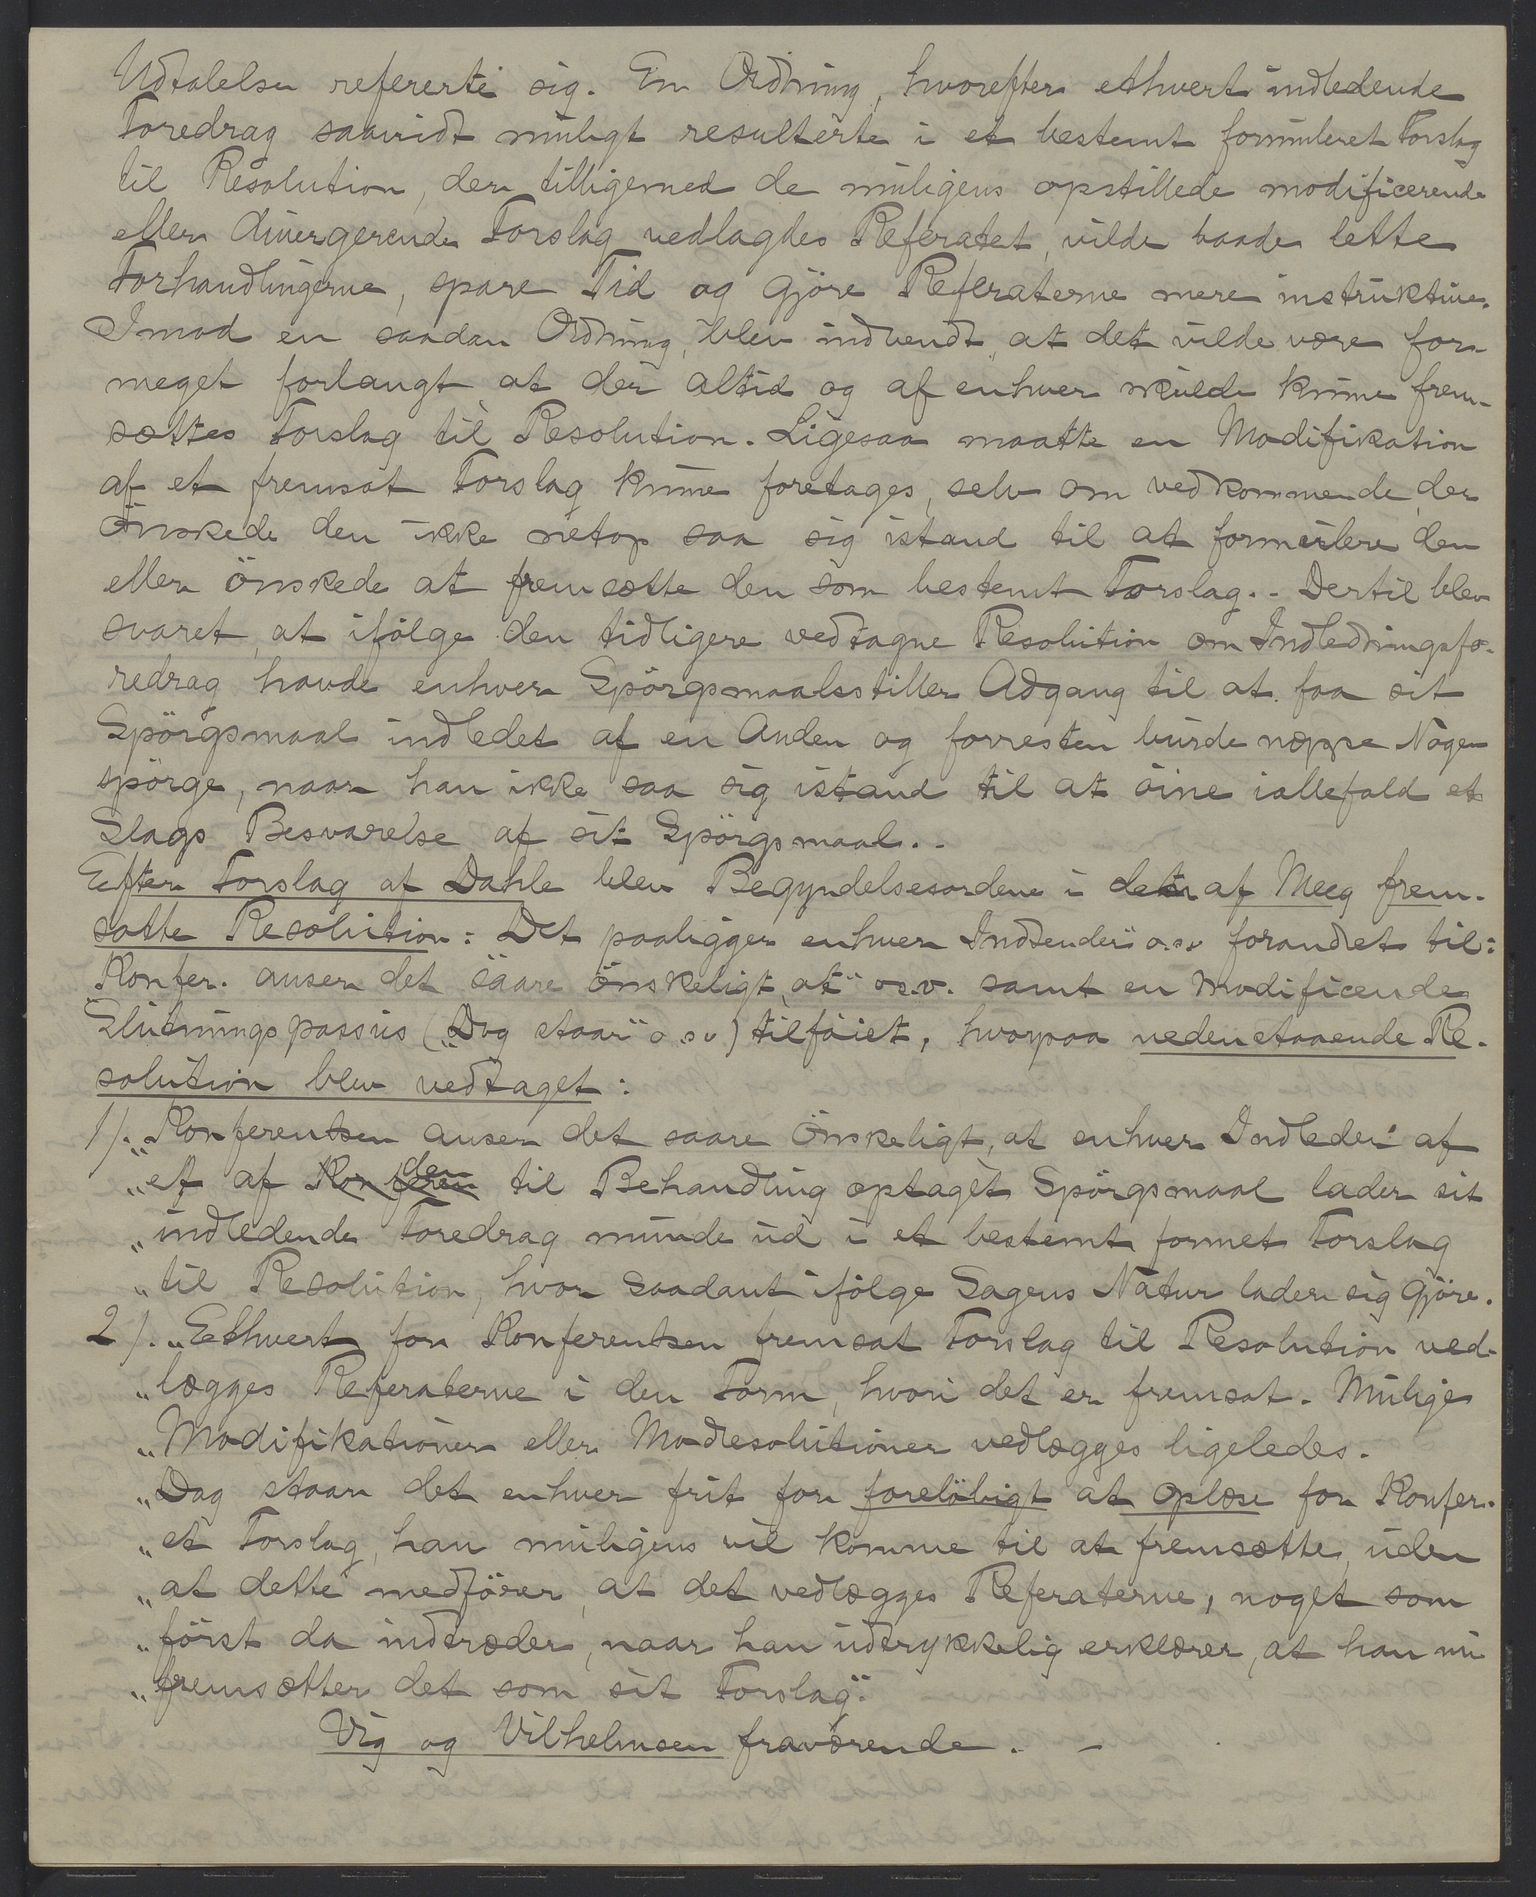 Udtalelser refererte sig. En Ordning, hvorefter ethvert indledende
Foredrag saavidt muligt resulterte i et bestemt formuleret Forslag
til Resolution, der tilligemed de muligens opstillede modificerende
eller divergerende Forslag vedlagdes Referatet, vilde baade lette
Forhandlingerne, spare Tid og gjöre Referaterne mere instruktive.
Imod en saadan Ordning, blev indvendt, at det vilde være for
meget forlangt at der altid og af enhver skulde kunne frem-
sættes Forslag til Resolution. Ligesaa maatte en Modifikation
af et fremsat Forslag kunne foretages, selv om vedkommende, der
önskede den ikke netop saa sig istand til at formulere den
eller önskede at fremsætte den som bestemt Forslag.- Dertil blev
svaret, at ifölge den tidligere vedtagne Resolution om Indledningsfo-
redrag havde enhver Spörgsmaalsstiller Adgang til at faa sit
Spörgsmaal indledet af en Anden og forresten burde neppe Nogen
spörge, naar han ikke saa sig istand til at öine iallefald et
Slags Besvarelse af sit Spörgsmaal. -
Efter Forslag af Dahle blev Begyndelsesordene i den af Meeg frem-
satte Resolution: "Det paaligger enhver Indsender" o.s.v forandret til:
Konfer. anser det saare önskeligt, at" o.s.v. samt en modificende
Slutningspassus ("Dog staar" o.s.v) tilföiet, hvorpaa nedenstaaende Re-
solution blev vedtaget:
1). "Konferentsen anser det saare önskeligt, at enhver Indleder af
"et af den til Behandling optaget Spörgsmaal lader sit
"indledende Foredrag munde ud i et bestemt formet Forslag
"til Resolution, hvor saadant ifölge Sagens Natur lader sig gjöre.
2). "Ethvert for Konferentsen fremsat Forslag til Resolution ved-
"lægges Referaterne i den Form, hvori det er fremsat. Mulige
"Modifikationer eller Modresolutioner vedlægges ligeledes.
"Dog staar det enhver frit for foreløbigt at oplæse for Konfer.
"et Forslag, han muligens vil komme til at fremsætte, uden
"at dette medförer, at det vedlægges Referaterne, noget som
"först da indtræder, naar han udtrykkelig erklærer, at han nu
"fremsætter det som sit Forslag".
Vig og Vilhelmsen fraværende. -